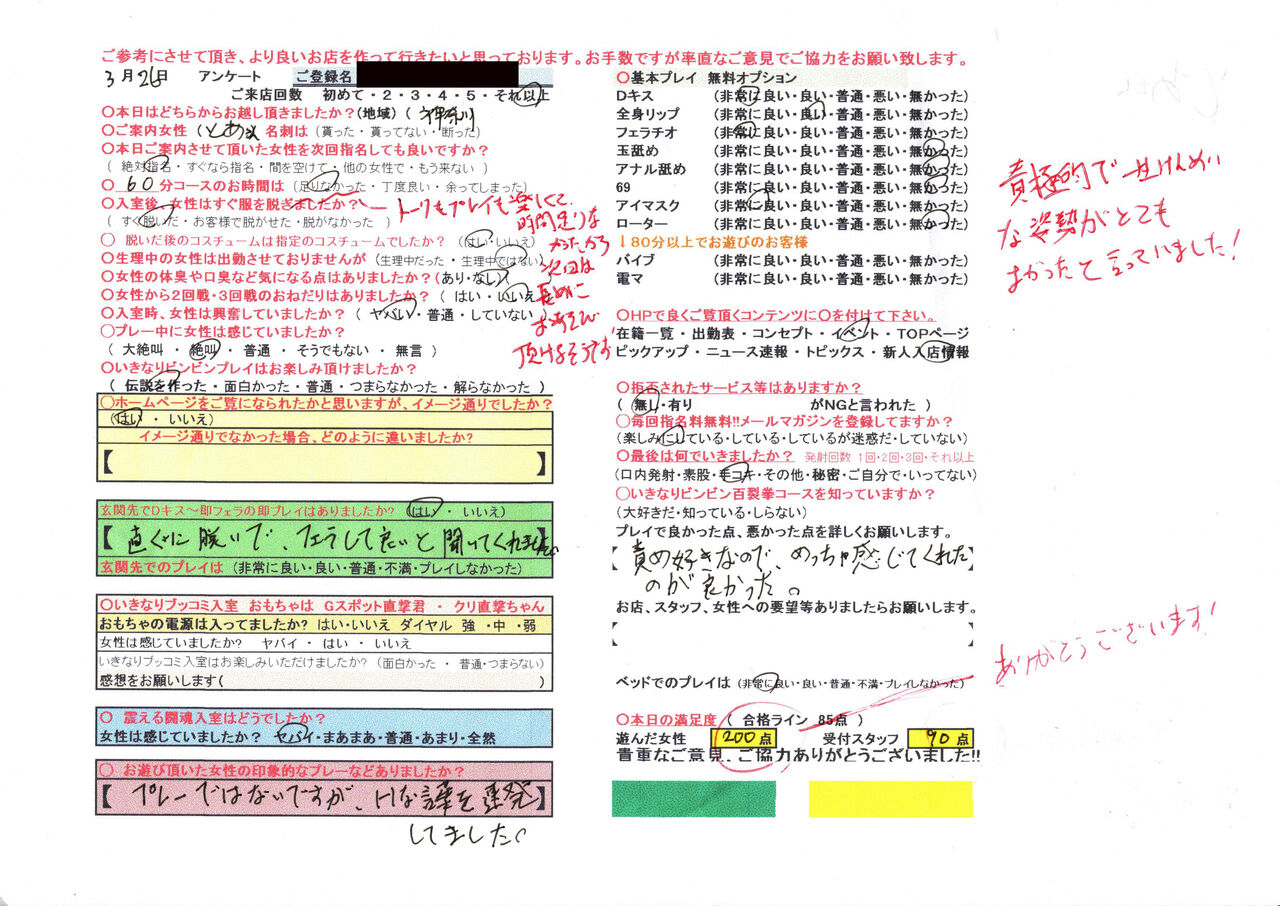 ご参考にさせて頂き、より良いお店を作って行きたいと思っております。お手数ですが率直なご意見でご協力をお願い致します。
3月26日 アンケート ご登録名
ご来店回数 初めて・2・3・4・5・それ以上
〇本日はどちらからお越し頂きましたか?(地域) ( 神奈川
〇ご案内女性 (とあ 名刺は (貰った・貰ってない・断った)
〇本日ご案内させて頂いた女性を次回指名しても良いですか?
( 絶対指名・すぐなら指名・間を空けて・他の女性で・もう来ない )
〇 60分コースのお時間は (足りなかった・丁度良い・余ってしまった)
〇入室後、女性はすぐ服を脱ぎましたか?
( すぐ脱いだ・お客様で脱がせた・脱がなかった )
トークもプレイも楽しくて
時間足りな
かったから
次回は
長めに
お遊び
頂けるそうです!
〇 脱いだ後のコスチュームは指定のコスチュームでしたか? (はい・いいえ)
〇生理中の女性は出勤させておりませんが (生理中だった・生理中ではない)
〇女性の体臭や口臭など気になる点はありましたか?(あり・なし)
〇女性から2回戦・3回戦のおねだりはありましたか? ( はい・いいえ
〇入室時、女性は興奮していましたか? ( ヤバい・普通・していない )
〇プレー中に女性は感じていましたか?
( 大絶叫 ・ 絶叫 ・ 普通 ・ そうでもない ・ 無言 )
〇いきなりビンビンプレイはお楽しみ頂けましたか?
( 伝説を作った・面白かった・普通・つまらなかった・解らなかった )
〇ホームページをご覧になられたかと思いますが、イメージ通りでしたか?
(はい ・ いいえ)
イメージ通りでなかった場合、どのように違いましたか?
【 】
玄関先でDキス～即フェラの即プレイはありましたか? (はい ・ いいえ)
【 直ぐに脱いで、フェラして良いと聞いてくれました。
玄関先でのプレイは (非常に良い・良い・普通・不満・プレイしなかった)
〇いきなりブッコミ入室 おもちゃは Gスポット直撃君 ・ クリ直撃ちゃん
おもちゃの電源は入ってましたか? はい・いいえ ダイヤル 強 ・中 ・弱
女性は感じていましたか? ヤバイ ・ はい ・ いいえ
いきなりブッコミ入室はお楽しみいただけましたか? (面白かった ・ 普通・つまらない)
感想をお願いします( )
〇 震える闘魂入室はどうでしたか?
女性は感じていましたか? ヤバイ・まあまあ・普通・あまり・全然
〇 お遊び頂いた女性の印象的なプレーなどありましたか?
【 プレーではないですが、Hな言葉を連発】
してました。
〇基本プレイ 無料オプション
Dキス (非常に良い・良い・普通・悪い・無かった)
全身リップ (非常に良い・良い・普通・悪い・無かった)
フェラチオ (非常に良い・良い・普通・悪い・無かった)
玉舐め (非常に良い・良い・普通・悪い・無かった)
アナル舐め (非常に良い・良い・普通・悪い・無かった)
69 (非常に良い・良い・普通・悪い・無かった)
アイマスク (非常に良い・良い・普通・悪い・無かった)
ローター (非常に良い・良い・普通・悪い・無かった)
↓80分以上でお遊びのお客様
バイブ (非常に良い・良い・普通・悪い・無かった)
電マ (非常に良い・良い・普通・悪い・無かった)
〇HPで良くご覧頂くコンテンツに〇を付けて下さい。
在籍一覧・出勤表・コンセプト・イベント・TOPページ
ピックアップ・ニュース速報・トピックス・新人入店情報
〇拒否されたサービス等はありますか?
( 無し・有り がNGと言われた )
〇毎回指名料無料!!メールマガジンを登録してますか?
(楽しみにしている・している・しているが迷惑だ・していない)
〇最後は何でいきましたか? 発射回数 1回・2回・3回・それ以上
(口内発射・素股・手コキ・その他・秘密・ご自分で・いってない)
〇いきなりビンビン百裂拳コースを知っていますか?
(大好きだ・知っている・しらない)
プレイで良かった点、悪かった点を詳しくお願いします。
【責め好きなので、めっちゃ感じてくれた】
のが良かった。
お店、スタッフ、女性への要望等ありましたらお願いします。
【 】
ベッドでのプレイは (非常に良い・良い・普通・不満・プレイしなかった)
〇本日の満足度 ( 合格ライン 85点 )
遊んだ女性 200点 受付スタッフ 90点
貴重なご意見、ご協力ありがとうございました!!
積極的で一生けんめい
な姿勢がとても
よかったと言っていました!
ありがとうございます!